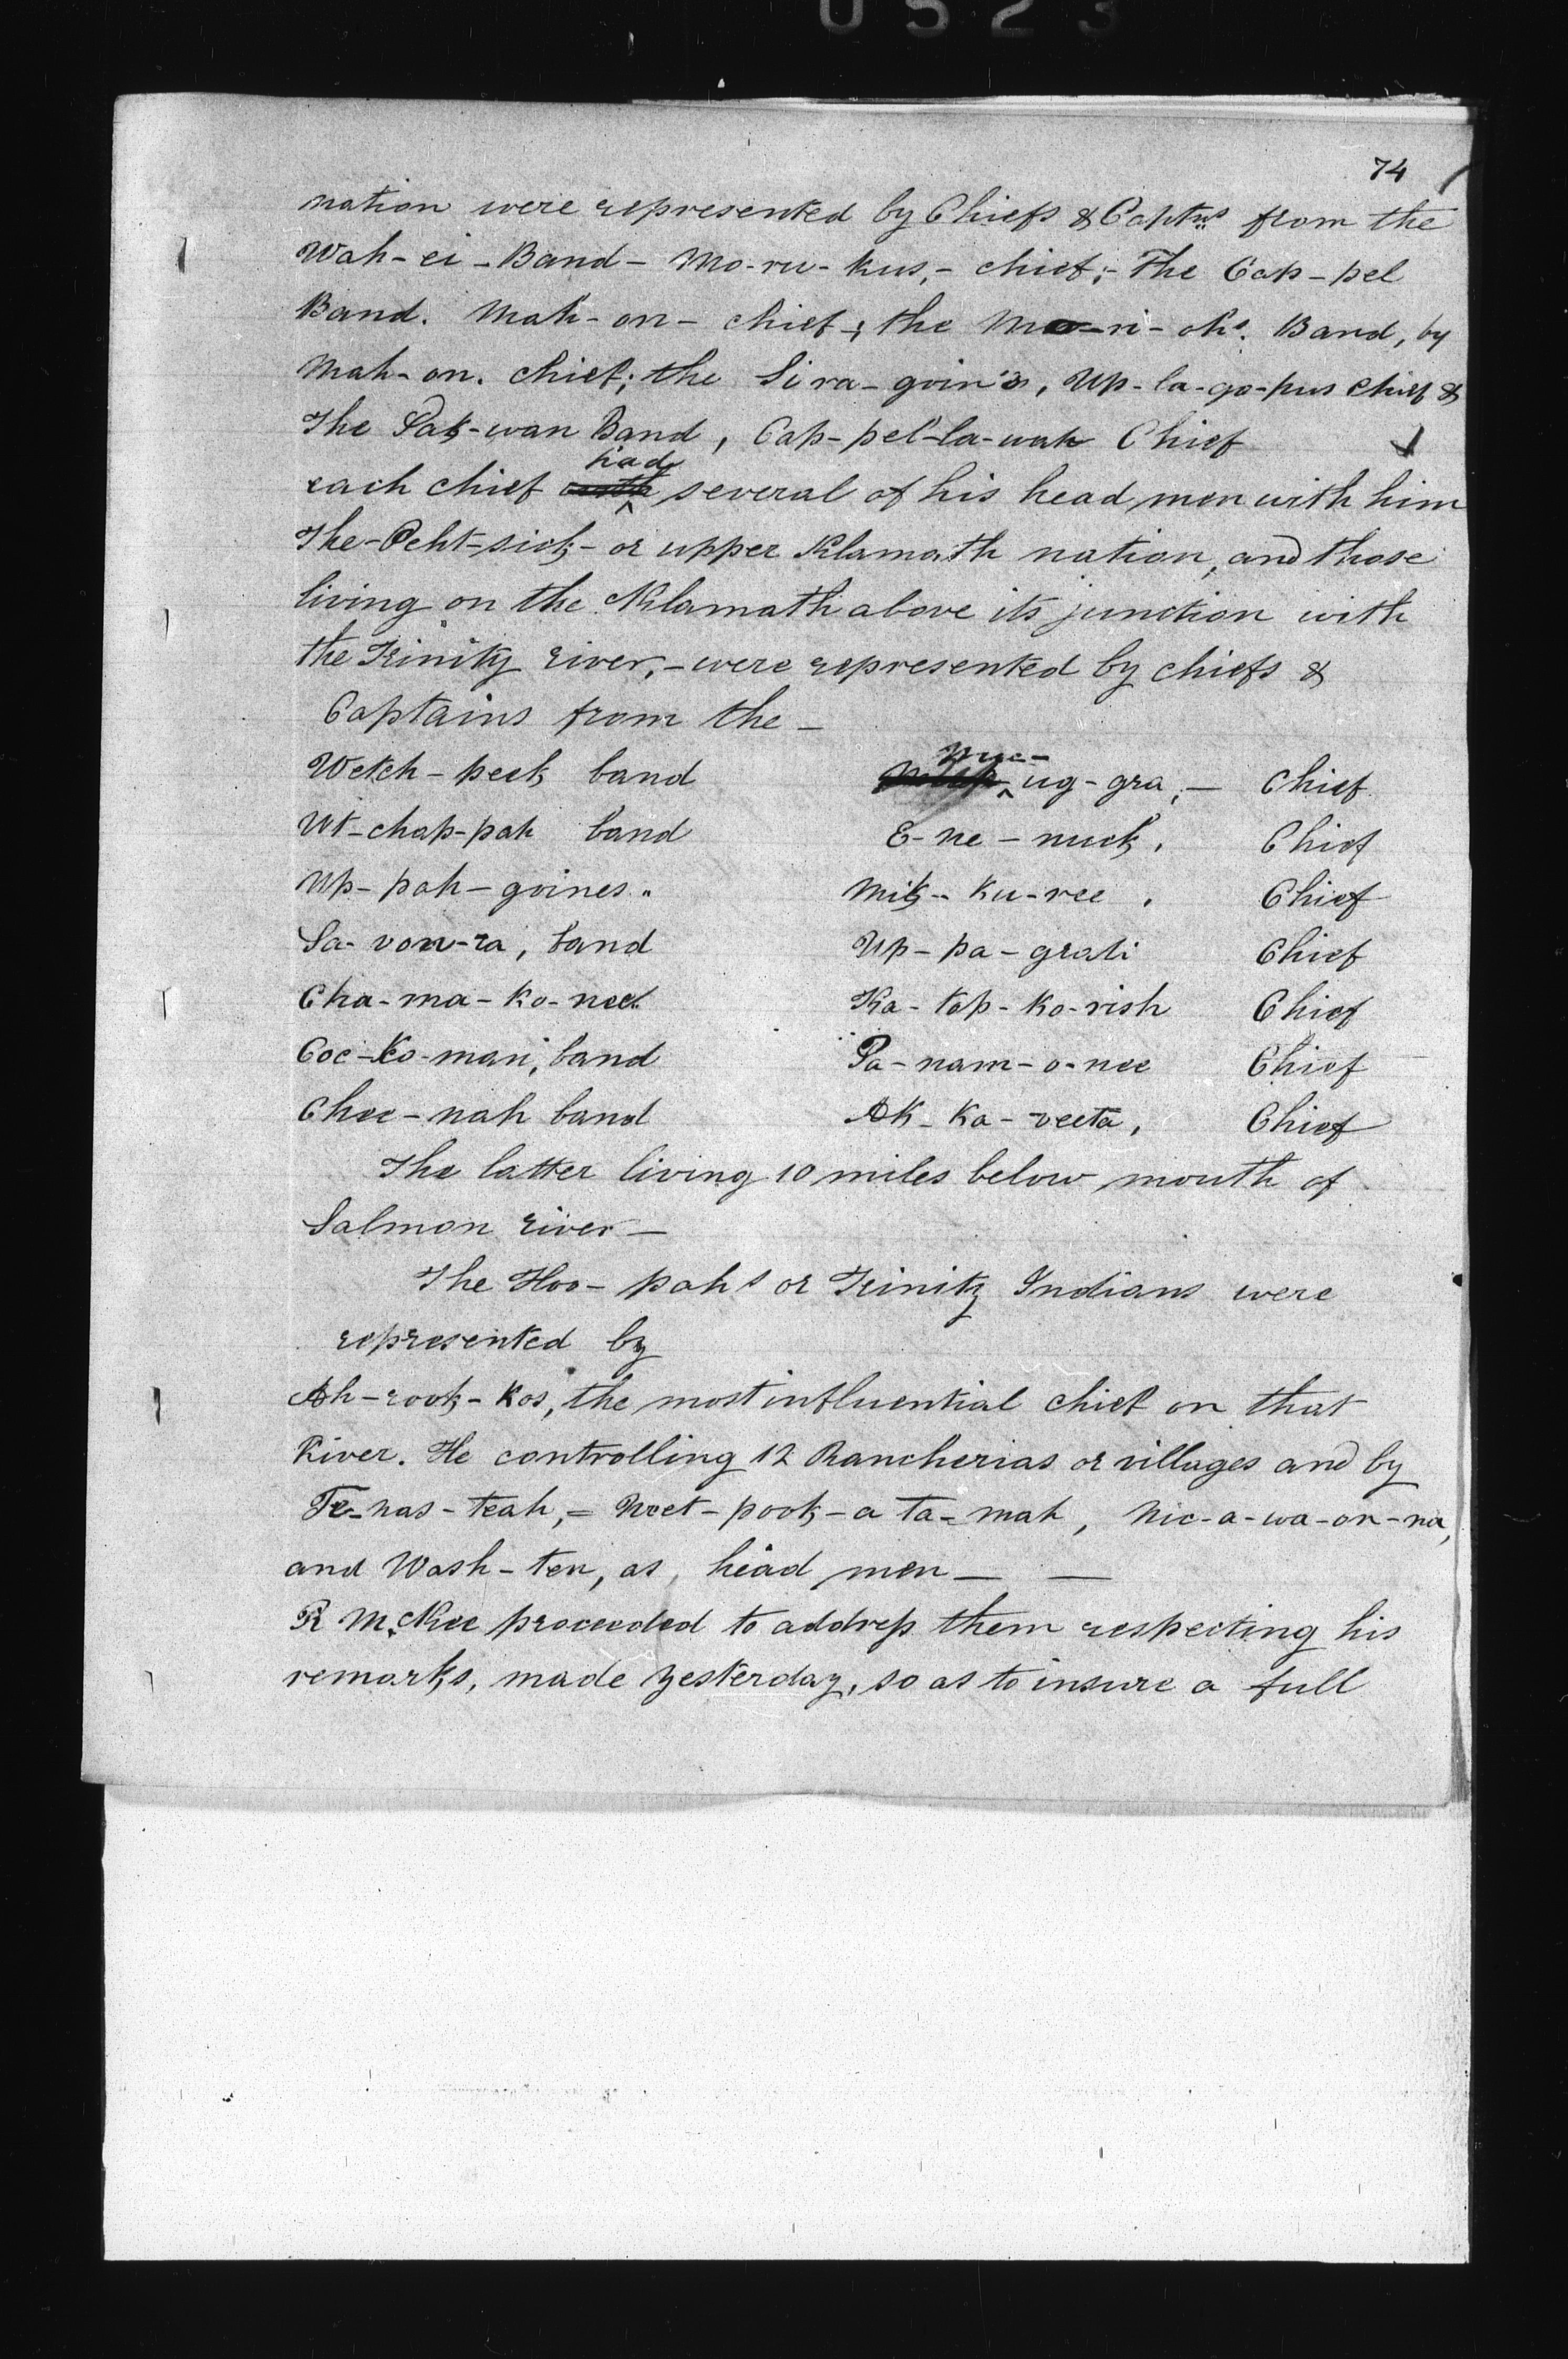 0523
74
nation were represented by Chiefs & Captns from the
Wah-ei-Band- Mo-ru-kus,- chief;- The Cap-pel
Band. Mah-on- chief-; the Mo-ri-ohs. Band, by
Mah-on. chief; the Si ra-goin's, Up-la-go-pus chief &
The Pak-wan Band, Cap-pel-la-wah Chief
had
each chief several of his head men with him
The-Peht-sick- or upper Klamath nation, and those
living on the Klamath above its junction with
the Trinity river,-were represented by chiefs &
Captains from the-
Wetch-peck band Nuc- ug-gra,- Chief
Wt-chap-pah band E-ne-nuck, Chief
Up-pah-goines " Mik-ku-ree, Chief
Sa-von-ra, band Up-pa-grati Chief
Cha-ma-ko-nee " Ka-tap-ko-rish Chief
Coc-Ko-man, band Pa-nam-o-nee Chief
Chee-nah band Ak-Ka-veeta, Chief
The latter living 10 miles below mouth of
Salmon river-
The Hoo-pahs or Trinity Indians were
represented by
Ah-rook-kos, the most influential chief on that
River. He controlling 12 Rancherias or villages and by
Te-nas-teah,= Weet-pook-a ta-mah, Nic-a-wa-on-na,
and Wash-ten, as head men- -
R McKee proceeded to address them respecting his
remarks, made yesterday, so as to insure a full